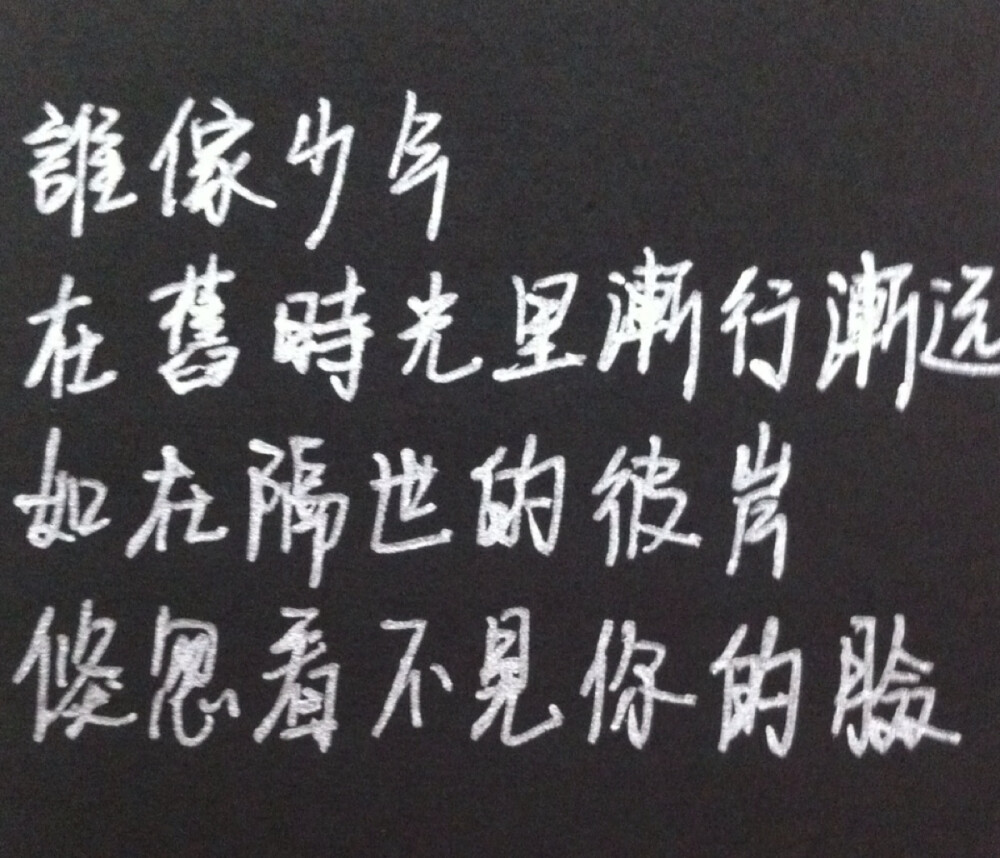 誰傢少年
在舊時光里漸行漸远
如在隔世的彼岸
倏忽看不見你的臉